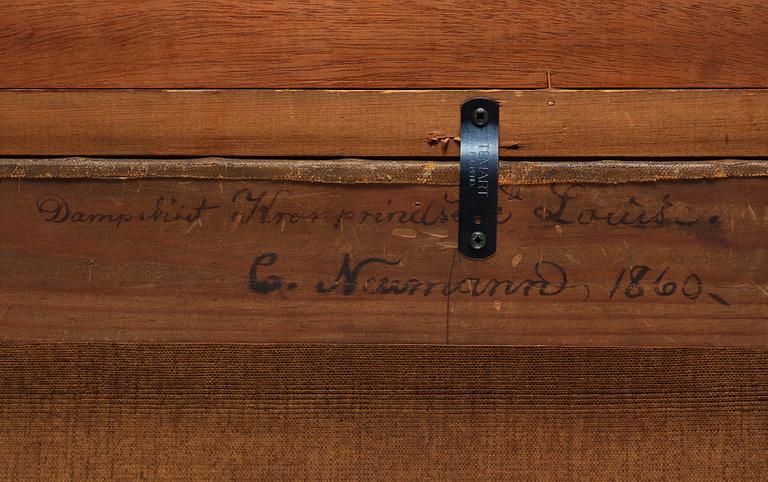 Dampskibet Kronprindsesse Louise.
C. Neumann, 1860.
TENART